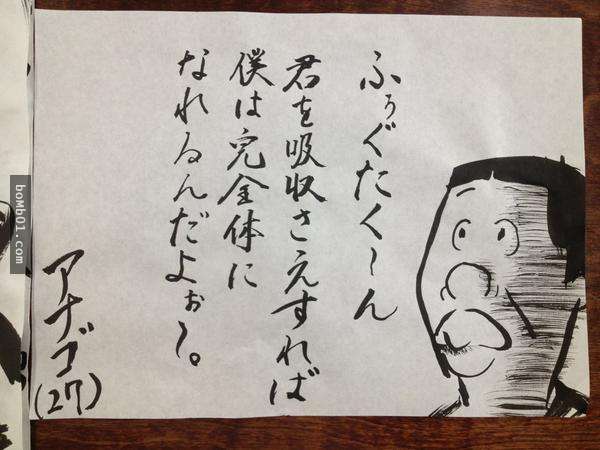 ふぅぐたく〜ん
君を吸収さえすれば
僕は完全体に
なれるんだよぉ〜。
アナゴ
(27)
bomb01.com